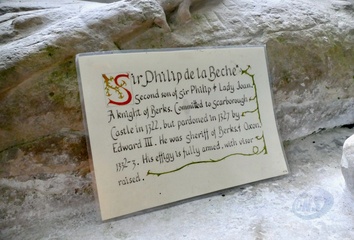 Sir Philip de la Beche
Second son of Sir Philip + Lady Joan.
A knight of Berks. Committed to Scarborough
Castle in 1322, but pardoned in 1327 by
Edward III. He was sheriff of Berks + Oxon,
1332-3. His effigy is fully armed, with visor
raised.